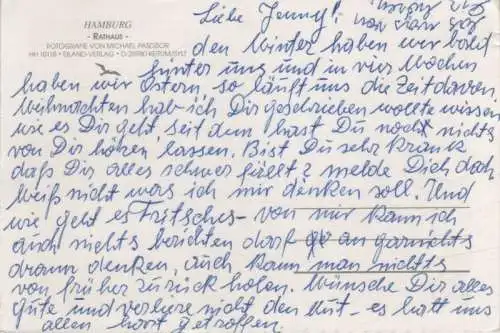 HAMBURG
- RATHAUS -
FOTOGRAFIE VON MICHAEL PASDZIOR
HH 1011/8 • EILAND-VERLAG • D-25980 KEITUM/SYLT
Liebe Jenny!
den Winter haben wir bald
hinter uns und in vier Wochen
haben wir Ostern, so läuft uns die Zeit davon.
Weihnachten hab ich Dir geschrieben wollte wissen
wie es Dir geht, seit dem hast Du noch nichts
von Dir hören lassen. Bist Du sehr krank
daß Dir alles schwer fällt? melde Dich doch
weiß nicht was ich mir denken soll. Und
wie geht es Fritsches - von mir kann ich
auch nichts berichten darf an garnichts
dran denken, auch kann man nichts
von früher zurück holen. Wünsche Dir alles
gute und verliere nicht den Mut - es hatt uns
allen hart getroffen.